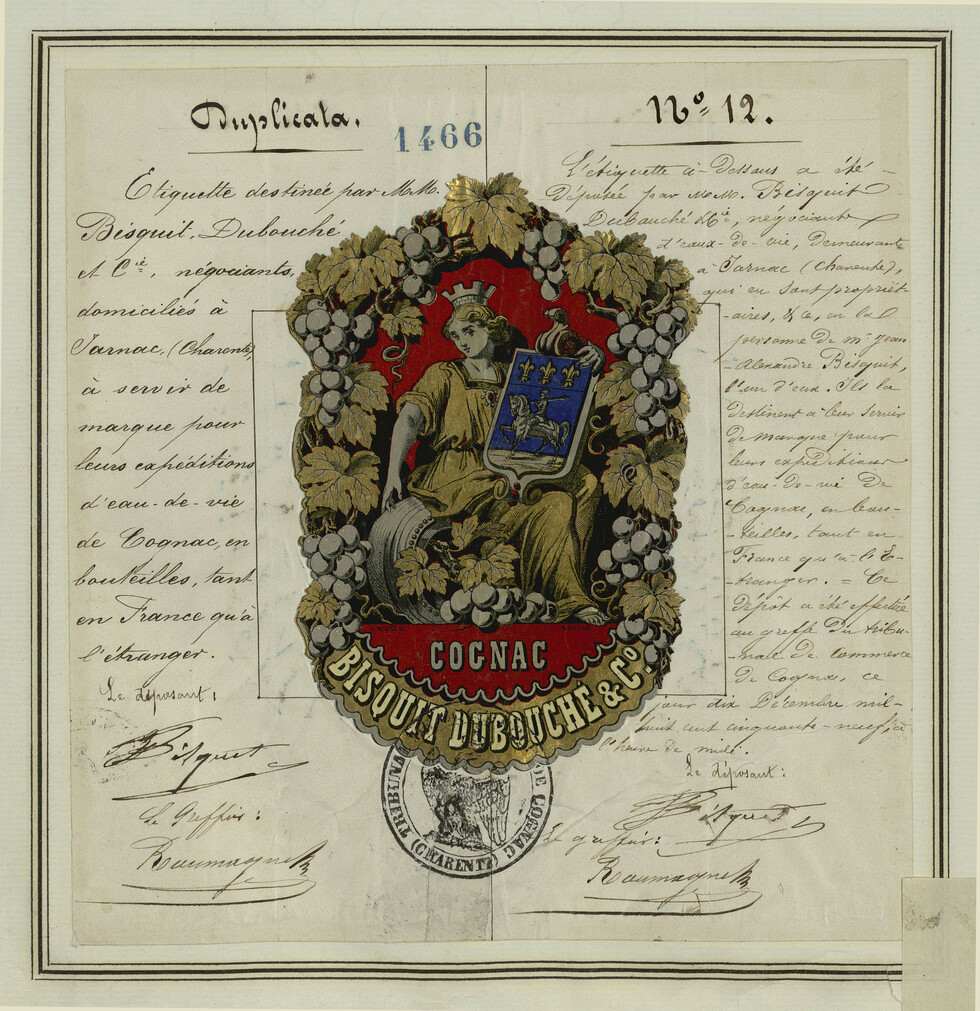 Duplicata.
1466
Etiquette destinée par M.M.
Bisquit, Dubouché
et Cie, négociants,
domiciliés à
Jarnac, (Charente)
à servir de
marque pour
leurs expéditions
d'eau-de-vie
de Cognac, en
bouteilles, tant
en France qu'à
l'étranger.
Le déposant:
Bisquit
Le Greffier:
Roumagne
No 12.
L'étiquette ci-Dessus a été
Déposée par M.M. Bisquit
Dubouché & Cie, négociants
d'eaux-de-vie, Demeurant
à Jarnac (Charente),
qui en sont propriét-
-aires, & ce, en la
personne de Mr Jean
Alexandre Bisquit,
l'un d'eux. Ils la
destinent à leur servir
De marque pour
leurs expéditions
d'eau-De-vie De
Cognac, en bou-
-teilles, tant en
France qu'à l'E-
-tranger. = Ce
Dépôt a été effectué
au greffe Du tribu-
-nal De Commerce
De Cognac, ce
jour dix Décembre mil-
huit cent cinquante-neuf, à
l'heure de midi.
Le déposant:
Bisquit
Le greffier:
Roumagne
COGNAC
BISQUIT DUBOUCHE & Co
TRIBUNAL DE COGNAC
(CHARENTE)